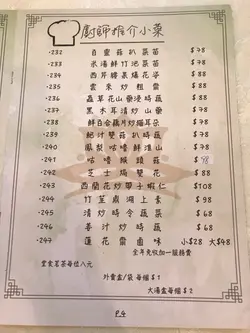 廚師推介小菜
·232 自靈菇扒菜苗 $78
·233 米湯鮮竹浸菜苗 $78
·234 西芹蜂巢爆花姿 $78
·235 雲來炒粗齋 $78
·236 蟲草花山藥浸時蔬 $78
·237 黑木耳清炒山藥 $78
·238 鮮百合藕片炒貓耳朵 $78
·239 鮑汁雙菇扒時蔬 $78
·240 鳳梨咕嚕鮮淮山 $78
·241 咕嚕猴頭菇 $78
·242 芝士焗雙花 $78
·243 西蘭花炒帶子蝦仁 $108
·244 竹笙燕湖上素 $98
·245 清炒時令蔬菜 $68
·246 薑汁炒時蔬 $68
·247 蓮花齋鹵味 小$28 大$48
全年免收加一服務費
堂食茗茶每位八元
外賣盒/袋 每個 $1
大湯盒每個 $2
P.4